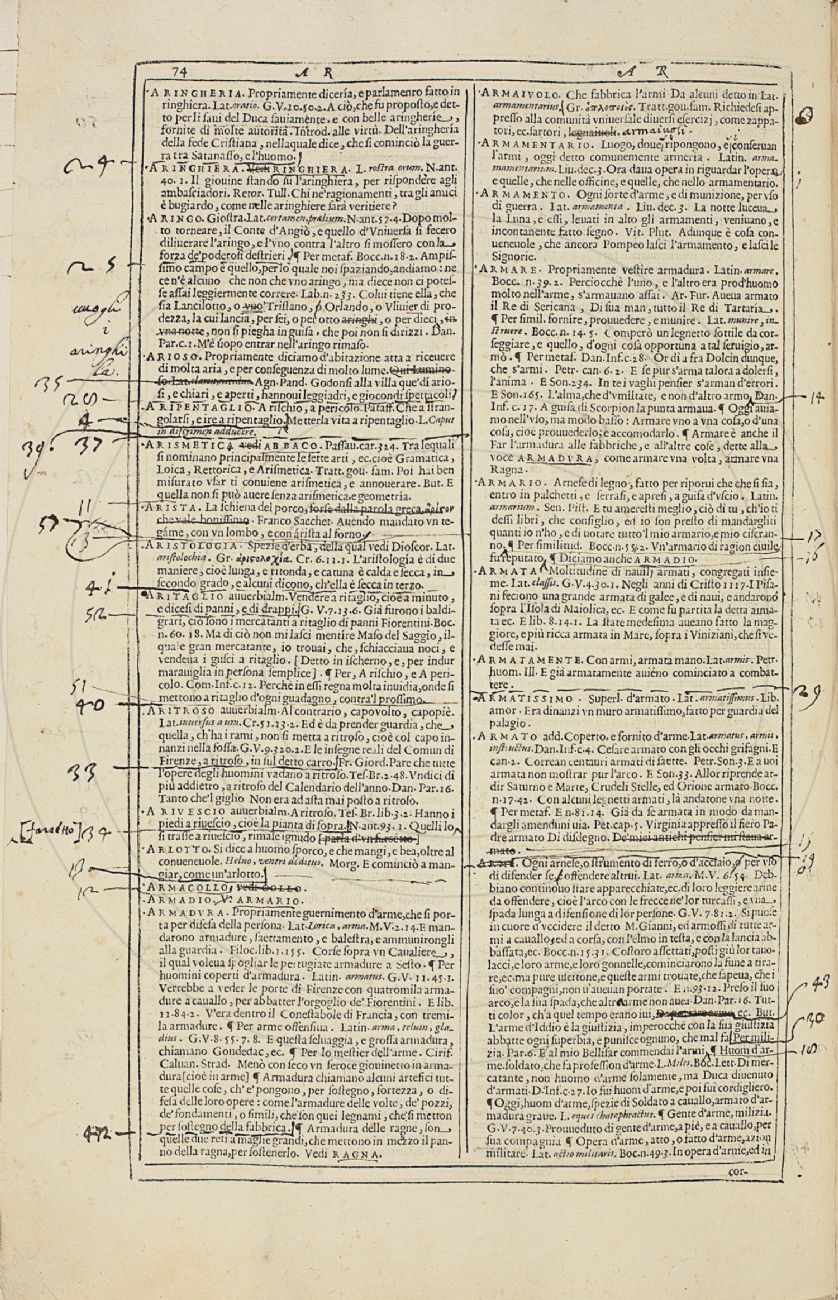 74 A R
A R
ARINGHERIA. Propriamente diceria, e parlamento fatto in
ringhiera. Lat. oratio. G.V.10.50.2. A ciò, che fu proposto, e det-
to per li saui del Duca sauiamente, e con belle aringherie,
fornite di molte autorità. Introd. alle virtù. Dell'aringheria
della fede Cristiana, nella quale dice, che si cominciò la guer-
ra tra Satanasso, e l'huomo.
ARINGHIERA. Vedi RINGHIERA. L. rostra orum. N. ant.
40.1. Il giouine stando su l'aringhiera, per rispondere agli
ambasciadori. Retor. Tull. Chi ne' ragionamenti, tra gli amici
è bugiardo, come nelle aringhiere sarà veritiere?
ARINGO. Giostra. Lat. certamen, prælium. N. ant. 57.4. Dopo mol-
to torneare, il Conte d'Angiò, e quello d'Vniuersa si fecero
diliuerare l'aringo, e l'vno contra l'altro si mossero con la
forza de' poderosi destrieri. ¶ Per metaf. Bocc. n. 18.2. Ampis-
simo campo è quello, per lo quale noi spaziando, andiamo: ne
ce n'è alcuno che non che vno aringo, ma diece non ci potes-
se assai leggiermente correre. Lab. n. 233. Colui tiene ella, che
sia Lancilotto, o vuo Tristano, o Orlando, o Vliuier di pro-
dezza, la cui lancia, per sei, o per otto aringhi, o per dieci, in
vna notte, non si piegha in guisa, che poi non si dirizzi. Dan.
Par. c. 1. M'è uopo entrar nell'aringo rimaso.
ARIOSO. Propriamente diciamo d'abitazione atta a riceuere
di molta aria, e per conseguenza di molto lume. Qui Lumino-
so. Lat. Agn. Pand. Godonsi alla villa que' dì ario-
si, e chiari, e aperti, hannoui leggiadri, e giocondi spettacoli.
A RIPENTAGLIO. A rischio, a pericolo. Pataff. Che a stran-
golarsi, e ire a ripentaglio. Metter la vita a ripentaglio. L. Caput
in discrimen adducere.
ARISMETICA. Vedi ABBACO. Passau. car. 324. Tra le quali
si nominano principalmente le sette arti, ec. cioè Gramatica,
Loica, Rettorica, e Arismetica. Tratt. gou. fam. Poi hai ben
misurato vsar ti conuiene arismetica, e annouerare. But. E
quella non si può auere senza arismetica, e geometria.
ARISTA. La schiena del porco, forse dalla parola greca,
che vale bonissimo. Franco Sacchet. Auendo mandato vn te-
game, con vn lombo, e con arista al forno.
ARISTOLOGIA. Spezie d'erba, della qual vedi Dioscor. Lat.
aristolochia. Gr. ἀριστολοχία. Cr. 6.11.1. L'aristologia è di due
maniere, cioè lunga, e ritonda, e catuna è calda e secca, in
secondo grado, e alcuni dicono, ch'ella è secca in terzo.
A RITAGLIO auuerbialm. Vendere a ritaglio, cioè a minuto,
e dicesi di panni, e di drappi. G. V. 7.13.6. Già furono i baldi-
grari, ciò sono i mercatanti a ritaglio di panni Fiorentini. Bocc.
n. 60.18. Ma di ciò non mi lasci mentire Maso del Saggio, il-
quale gran mercatante, io trouai, che, schiacciaua noci, e
vendeua i gusci a ritaglio. [Detto in ischerno, e, per indur
marauiglia in persona semplice]. ¶ Per, A rischio, e A peri-
colo. Com. Inf. c. 12. Perchè in essi regna molta inuidia, onde si
mettono a ritaglio d'ogni guadagno, contra'l prossimo.
A RITROSO auuerbialm. Al contrario, capovolto, capopiè.
Lat. inuersus a um. Cr. 51.23.2. Ed è da prender guardia, che
quella, ch'ha i rami, non si metta a ritroso, cioè col capo in-
nanzi nella fossa. G.V. 9.320.2. E le insegne reali del Comun di
Firenze, a ritroso, in sul detto carro. Fr. Giord. Pare che tutte
l'opere degli huomini vadano a ritroso. Tes. Br. 2.48. Vndici di
più addietro, a ritroso del Calendario dell'anno. Dan. Par. 16.
Tanto che'l giglio Non era ad asta mai posto a ritroso.
A RIVESCIO auuerbialm. A ritroso. Tes. Br. lib. 3.2. Hanno i
piedi a riuescio, cioè la pianta di sopra. N. ant. 93.1. Quelli lo
si trasse a riuescio, rimase ignudo [parla d'vn farsetto]
ARLOTTO. Si dice a huomo sporco, e che mangi, e bea, oltre al
conueneuole. Heluo, ventri deditus. Morg. E cominciò a man-
giar, come vn'arlotto.
ARMACOLLO, vedi COLLO.
ARMADIO. V. ARMARIO.
ARMADVRA. Propriamente guernimento d'arme, che si por-
ta per difesa della persona. Lat. Lorica, arma. M.V. 2.14. E man-
darono armadure, saettamento, e balestra, e ammunirongli
alla guardia. Filoc. lib. 1.155. Corse sopra vn Caualiere,
il qual voleua spogliar le pertugiate armadure a Sesto. ¶ Per
huomini coperti d'armadura. Latin. armatus. G.V. 11.45.1.
Verrebbe a veder le porte di Firenze con quatromila arma-
dure a cauallo, per abbatter l'orgoglio de' Fiorentini. E lib.
11.84.2. V'era dentro il Conestabole di Francia, con tremi-
la armadure. ¶ Per arme offensiua. Latin. arma, telum, gla-
dius. G.V. 8.55.7.8. E questa seluaggia, e grossa armadura,
chiamano Gondedac, ec. ¶ Per lo mestier dell'arme. Cirif.
Caluan. Strad. Menò con seco vn feroce giouinetto in arma-
dura [cioè in arme] ¶ Armadura chiamano alcuni artefici tut-
te quelle cose, ch'e' pongono, per sostegno, fortezza, o di-
fesa delle loro opere: come l'armadure delle volte, de' pozzi,
de' fondamenti, o simili, che son quei legnami, che si metton
per sostegno della fabbrica. ¶ Armadura delle ragne, son
quelle due reti a maglie grandi, che mettono in mezzo il pan-
no della ragna, per sostenerlo. Vedi RAGNA.
ARMAIVOLO. Che fabbrica l'armi Da alcuni detto in Lat.
armamentarius, Gr. ὁπλοποιός. Tratt. gou. fam. Richiedesi ap-
presso alla comunità vniuersale diuersi esercizj, come zappa-
tori, ec. sartori, legnaiuoli. armaiuoli.
ARMAMENTARIO. Luogo, doue ripongono, e conseruan
l'armi, oggi detto comunemente armeria. Latin. arma-
mentarium. Liu. dec. 3. Ora daua opera in riguardar l'opera,
e quelle, che nelle officine, e quelle, che nello armamentario.
ARMAMENTO. Ogni sorte d'arme, e di munizione, per vso
di guerra. Lat. armamenta. Liu. dec. 3. La notte luceua
la Luna, e essi, leuati in alto gli armamenti, veniuano, e
incontanente fatto segno. Vit. Plut. Adunque è cosa con-
ueneuole, che ancora Pompeo lasci l'armamento, e lascile
Signorie.
ARMARE. Propriamente vestire armadura. Latin. armare.
Bocc. n. 39.2. Perciocchè l'uno, e l'altro era prod'huomo
molto nell'arme, s'armauano assai. Ar. Fur. Aueua armato
il Re di Sericana, Di sua man, tutto il Re di Tartaria.
¶ Per simil. fornire, prouuedere, e munire. Lat. munire, in-
struere. Bocc. n. 14.5. Comperò un legnetto sottile da cor-
seggiare, e quello, d'ogni cosa opportuna a tal seruigio, ar-
mò. ¶ Per metaf. Dan. Inf. c. 28. Or di a fra Dolcin dunque,
che s'armi. Petr. can. 6.2. E se pur s'arma talora a dolersi,
l'anima. E Son. 234. In te i vaghi pensier s'arman d'errori.
E Son. 165. L'alma, che d'vmiltate, e non d'altro armo, Dan.
Inf. c. 17. A guisa di Scorpion la punta armaua. ¶ Oggi auia-
mo nell'vso, ma modo basso: Armare vno a vna cosa, o d'una
cosa, cioè prouuederlo; e accomodarlo. ¶ Armare è anche il
Far l'armadura alle fabbriche, e all'altre cose, dette alla
voce ARMADVRA, come armare vna volta, armare vna
Ragna.
ARMARIO. Arnese di legno, fatto per riporui che che si sia,
entro in palchetti, e serrasi, e apresi, a guisa d'vscio. Latin.
armarium. Sen. Pist. E tu ameresti meglio, ciò di tu, ch'io ti
dessi libri, che consiglio, ed io son presto di mandargliti
quanti io n'ho, e di uotare tutto'l mio armario, e mio ciscran-
no. ¶ Per similitud. Bocc. n. 55.2. Vn'armario di ragion ciuile
fu reputato. ¶ Diciamo anche ARMADIO.
ARMATA. Moltitudine di nauilj armati, congregati insie-
me. Lat. classis. G.V. 4.30.1. Negli anni di Cristo 1117. I Pisa-
ni feciono una grande armata di galee, e di naui, e andarono
sopra l'Isola di Maiolica, ec. E come fu partita la detta arma-
ta ec. E lib. 8.14.1. La state medesima aueano fatto la mag-
giore, e più ricca armata in Mare, sopra i Viniziani, che si ve-
desse mai.
ARMATAMENTE. Con armi, armata mano. Lat. armis. Petr.
huom. Ill. E già armatamente auieno cominciato a combat-
tere.
ARMATISSIMO. Superl. d'armato. Lat. armatissimus. Lib.
amor. Era dinanzi vn muro armatissimo, fatto per guardia del
palagio.
ARMATO add. Coperto, e fornito d'arme. Lat. armatus, armis
instructus. Dan. Inf. c. 4. Cesare armato con gli occhi grifagni. E
can. 2. Correan centauri armati di saette. Petr. Son. 3. E a uoi
armata non mostrar pur l'arco. E Son. 33. Allor riprende ar-
dir Saturno e Marte, Crudeli Stelle, ed Orione armato. Bocc.
n. 17.42. Con alcuni legnetti armati, là andatone vna notte.
¶ Per metaf. E n. 81.14. Già da se armata in modo da man-
dargli amenduni uia. Pet. cap. 5. Virginia appresso il fiero Pa-
dre armato Di disdegno. De' miei antichi pensier mi staua ar-
mato.
Arme. Ogni arnese, o strumento di ferro, o d'acciaio, per vso
di difender se, o offendere altrui. Lat. arma. M.V. 6.54. Deb-
biano continouo stare apparecchiate, ec. di loro leggiere arme
da offendere, cioè l'arco con le frecce ne' lor turcassi, e vna
spada lunga a difensione di lor persone. G.V. 7.81.2. Si puose
in cuore d'vccidere il detto M. Gianni, ed armossi di tutte ar-
mi a cauallo, ed a corsa, con l'elmo in testa, e con la lancia ab-
bassata, ec. Bocc. n. 15.31. Costoro assettati, posti giù lor tauo-
lacci, e loro arme, e loro gonnelle, cominciarono la fune a tira-
re, ec. ma pure uscitone, e queste armi trouate, che sapeua, che i
suo' compagni, non u'aueuan portate. E n. 93.12. Preso il suo
arco, e la sua spada, che altr'arme non auea. Dan. Par. 16. Tut-
ti color, ch'a quel tempo erano iui, Da portar arme ec. But.
L'arme d'Iddio è la giustizia, imperocchè con la sua giustizia
abbatte ogni superbia, e punisce ognuno, che mal fa. Per mili-
zia. Par. 6. E al mio Bellisar commendai l'armi. ¶ Huom d'ar-
me. soldato, che fa profession d'arme. L. Miles. Boc. Lett. Di mer-
catante, non huomo d'arme solamente, ma Duca diuenuto
d'armati. D. Inf. c. 27. Io fui huom d'arme, e poi fui cordigliero.
¶ Oggi, huom d'arme, spezie di Soldato a cauallo, armato d'ar-
madura graue. L. eques cataphractus. ¶ Gente d'arme, milizia.
G.V. 7.40.3. Prouueduto di gente d'arme, a piè, e a cauallo, per
sua compagnia ¶ Opera d'arme, atto, o fatto d'arme, azion
militare. Lat. actio militaris. Bocc. n. 49.3. In opera d'arme, ed in
cor-
24
25
35
28
4
39. 37
11
57
41
52
51
40
33
[farsetto] 34
12
42
14
17
15
29
19
43
30
18